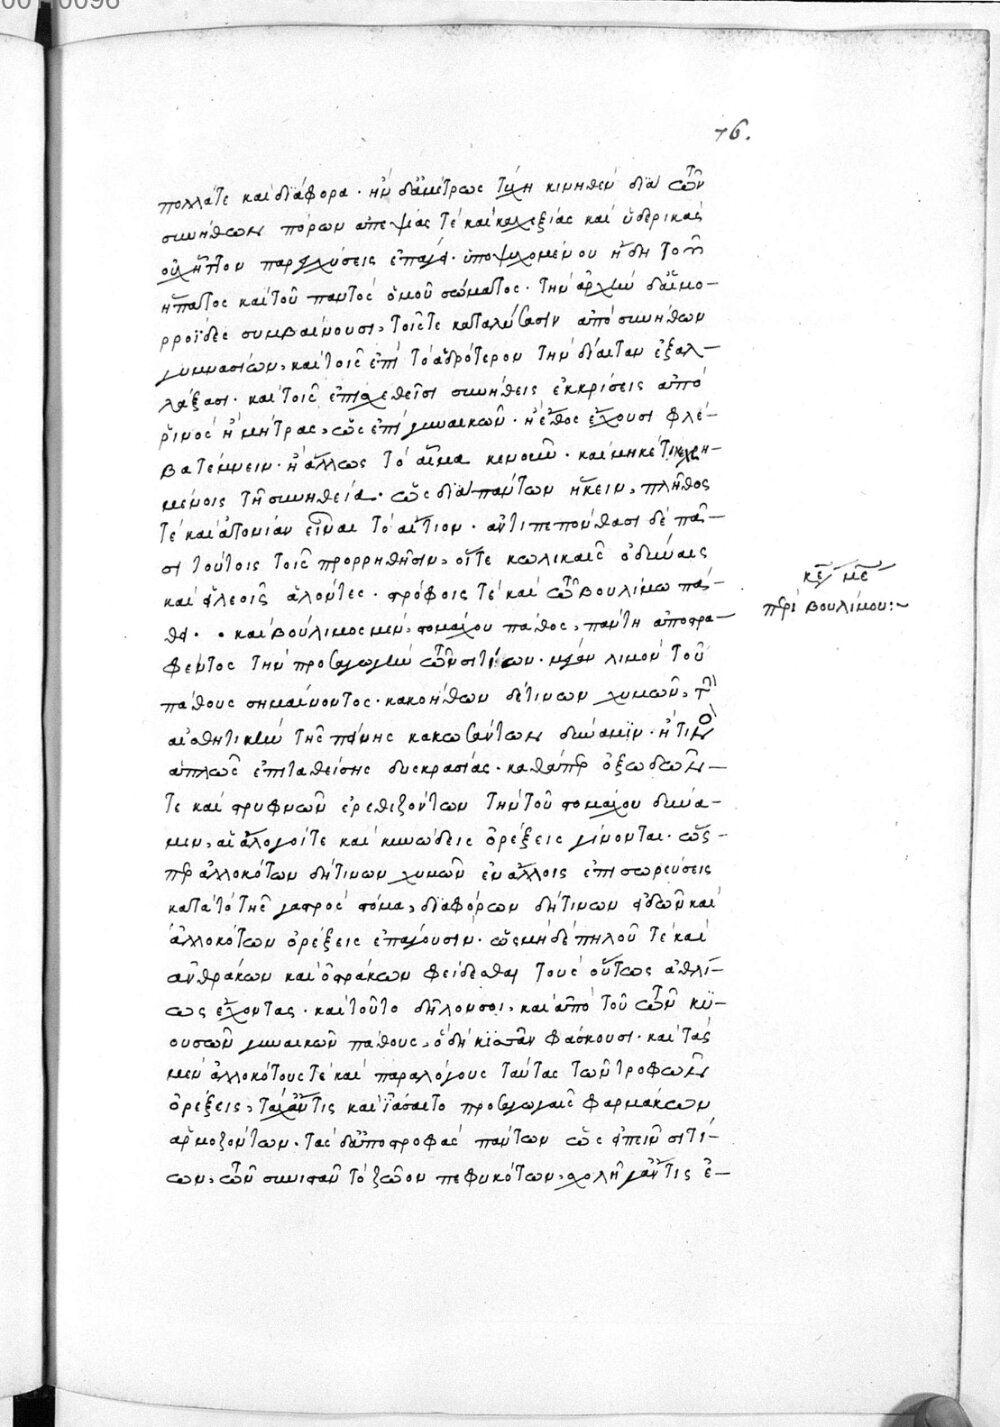 76.
πολλά τε καὶ διάφορα· ἢν δ' ἀμέτρως τύχῃ κινηθὲν διὰ τῶν
συνήθων πόρων ἀπεψίας τὲ καὶ καχεξίας καὶ ὑδερικὰς
οὐχ ἧττον παρεγχύσεις ἐπάγει·
ἥπατος καὶ τοῦ παντὸς ὁμοῦ σώματος· τὴν ἀρχὴν δ' αἱμο-
ρροΐδες συμβαίνουσι, τοῖς τε καταλύσασιν ἀπὸ συνήθων
γυμνασίων, καὶ τοῖς ἐπὶ τὸ ἁδρότερον τὴν δίαιταν ἐξαλ-
λάξασι· καὶ τοῖς ἐπισχεθεῖσι συνήθεις ἐκκρίσεις ἀπὸ
ῥινὸς ἢ μήτρας, ὡς ἐπὶ γυναικῶν· ἢ ἔθος ἔχουσι φλέ-
βα τέμνειν· ἢ ἄλλως τὸ αἷμα κενοῦν· καὶ μηκέτι χρη-
μένοις τῇ συνηθείᾳ· ὡς διὰ πάντων ἥκειν, πλῆθος
τὲ καὶ ἀτονίαν εἶναι τὸ αἴτιον· ἀντιπεπόνθασι δὲ πᾶ-
σι τούτοις τοῖς προρρηθεῖσιν, οἵτε κωλικαῖς ὀδύναις
καὶ εἰλεοῖς ἁλόντες· στρόφοις τὲ καὶ τῷ βουλίμῳ πά-
θει· καὶ βούλιμος μὲν, στομάχου πάθος, πάντη ἀποστρα-
φέντος τὴν προσαγωγὴν τῶν σιτίων· μέγαν λιμὸν τοῦ
πάθους σημαίνοντος· κακοήθων δέ τινων χυμῶν, τὴν
αἰσθητικὴν τῆς πείνης κακωσάντων δύναμιν· ἤ τινος
ἁπλῶς ἐπιταθείσης δυσκρασίας· καθάπερ ὀξωδῶν
τὲ καὶ στρυφνῶν ἐρεθιζόντων τὴν τοῦ στομάχου δύνα-
μιν, αἱ ἄλογοί τε καὶ κυνώδεις ὀρέξεις γίνονται· ὥς-
περ ἀλλοκότων δή τινων χυμῶν ἐν ἄλλοις ἐπισωρεύσεις
κατὰ τὸ τῆς γαστρὸς στόμα, διαφόρων δή τινων εἰδῶν καὶ
ἀλλοκότων ὀρέξεις ἐπάγουσιν· ὡς μὴ δὲ πηλοῦ τὲ καὶ
ἀνθράκων καὶ ὀστράκων φείδεσθαι τοὺς οὕτως ἀθλί-
ως ἔχοντας· καὶ τοῦτο δηλοῦσοι, καὶ ἀπὸ τοῦ τῶν κϋ-
ουσῶν γυναικῶν πάθους, ὃ δὴ κίσσαν φάσκουσι· καὶ τὰς
μὲν ἀλλοκότους τὲ καὶ παραλόγους ταύτας τῶν τροφῶν
ὀρέξεις, τάχ' ἄν τις καὶ ἰάσαιτο προσαγωγαῖς φαρμάκων
ἁρμοζόντων· τὰς δ' ἀποστροφὰς πάντων ὡς εἰπεῖν σιτί-
ων, τῶν συνιστᾶν τὸ ζῶον πεφυκότων, σχολῇ γ' ἄν τις ἐ-
κεφ με
περὶ βουλίμου:~